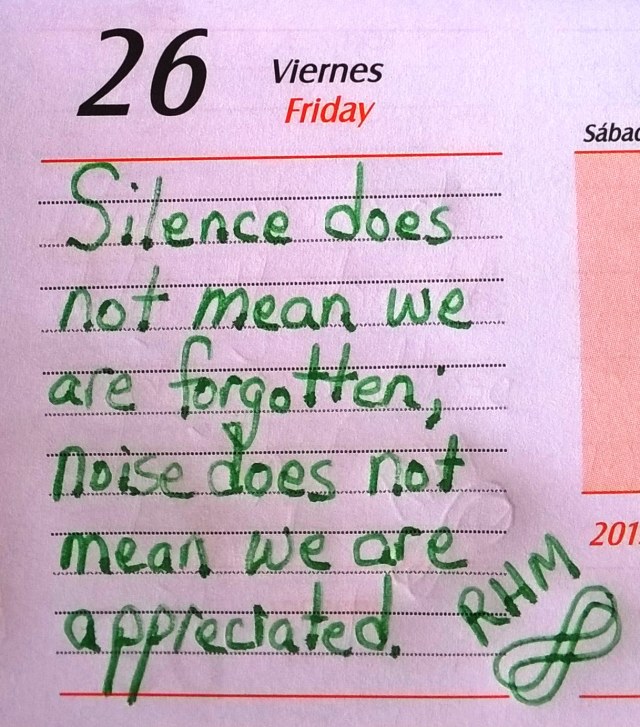 26
Viernes
Friday
Silence does
not mean we
are forgotten;
noise does not
mean we are
appreciated.
RHM
Sábad
201